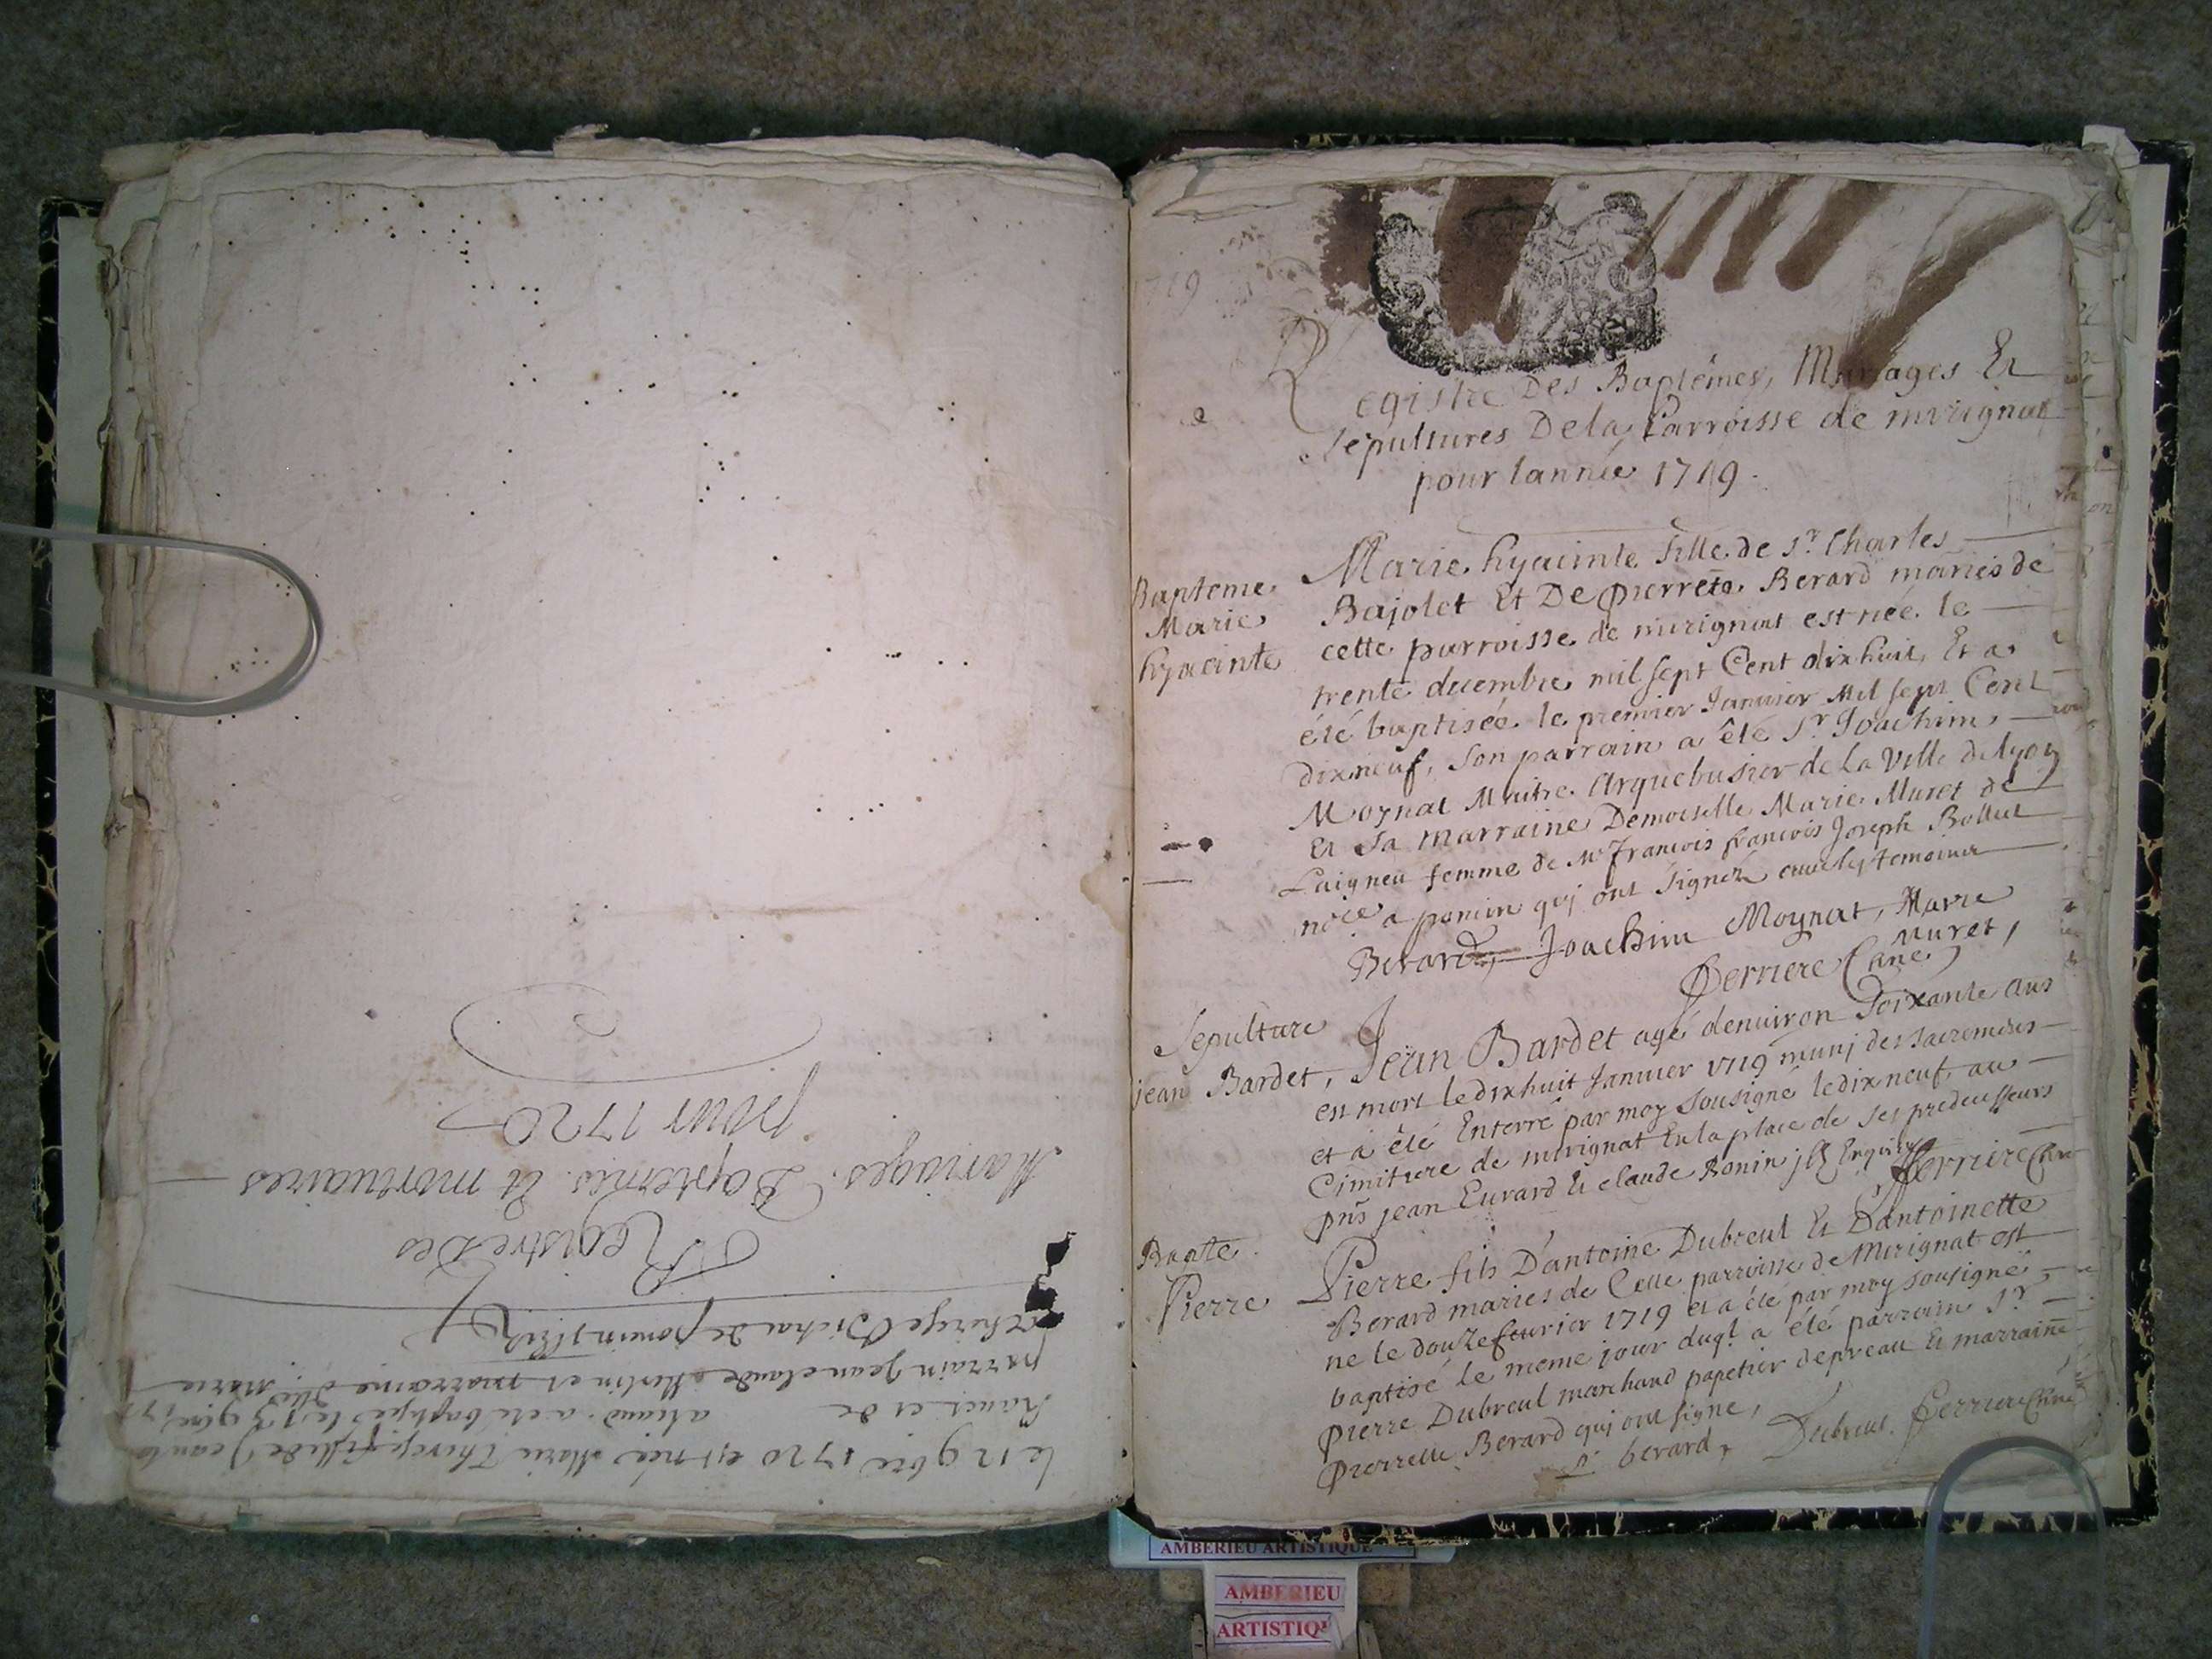 le 12 9bre 1720 est née Marie Therese fille de Jean la
et de a été baptisée le 13 9bre
parrain Jean claude Merlin et marraine Dlle Marie
therese
Registre Des
Mariages. Baptemes. Et mortuaires
pour 1720
1719
Registre Des Baptêmes, Mariages Et
sepultures De la Parroisse de mirignat
pour lannée 1719.
Bapteme
Marie
hyacinte
Marie hyacinte fille de Sr. Charles
Bajolet Et De pierrete Berard mariés de
cette parroisse de mirignat est née le
trente decembre mil sept Cent dixhuit, Et a
été baptisée le premier Janvier Mil sept Cent
dixneuf, son parrain a êté Sr Joachim
Moynat Maitre Arquebusier de La Ville de lyon
Et sa marraine Demoiselle Marie Muret de
Laigneu femme de Mr francois francois Joseph Bollet
a poncin quj ont signéz
Berard, Joachim Moynat, Marie
Muret,
Perriere Curé
Sepulture
jean Bardet,
Jean Bardet agé denuiron soixante ans
est mort le dixhuit Janvier 1719 munj des sacremens
et a êté Enterré par moy sousigné le dixneuf, au
Cimitiere de mirignat En la place de ses predecesseurs
pns jean Euvard Et claude Bonin
Perriere Curé
Bapte
Pierre
Pierre fils D'antoine Dubreul Et D'antoinette
Berard maries de Cette parroisse de Mirignat est
ne le douze feurier 1719 et a été par moy sousigné
baptisé le meme jour duql a été parrain Sr
pierre Dubreul marchand papetier de preau Et marraine
pierrette Berard quj ont signe,
p berard, Dubreul. Perriere Curé
AMBERIEU ARTISTIQUE
AMBERIEU
ARTISTIQU